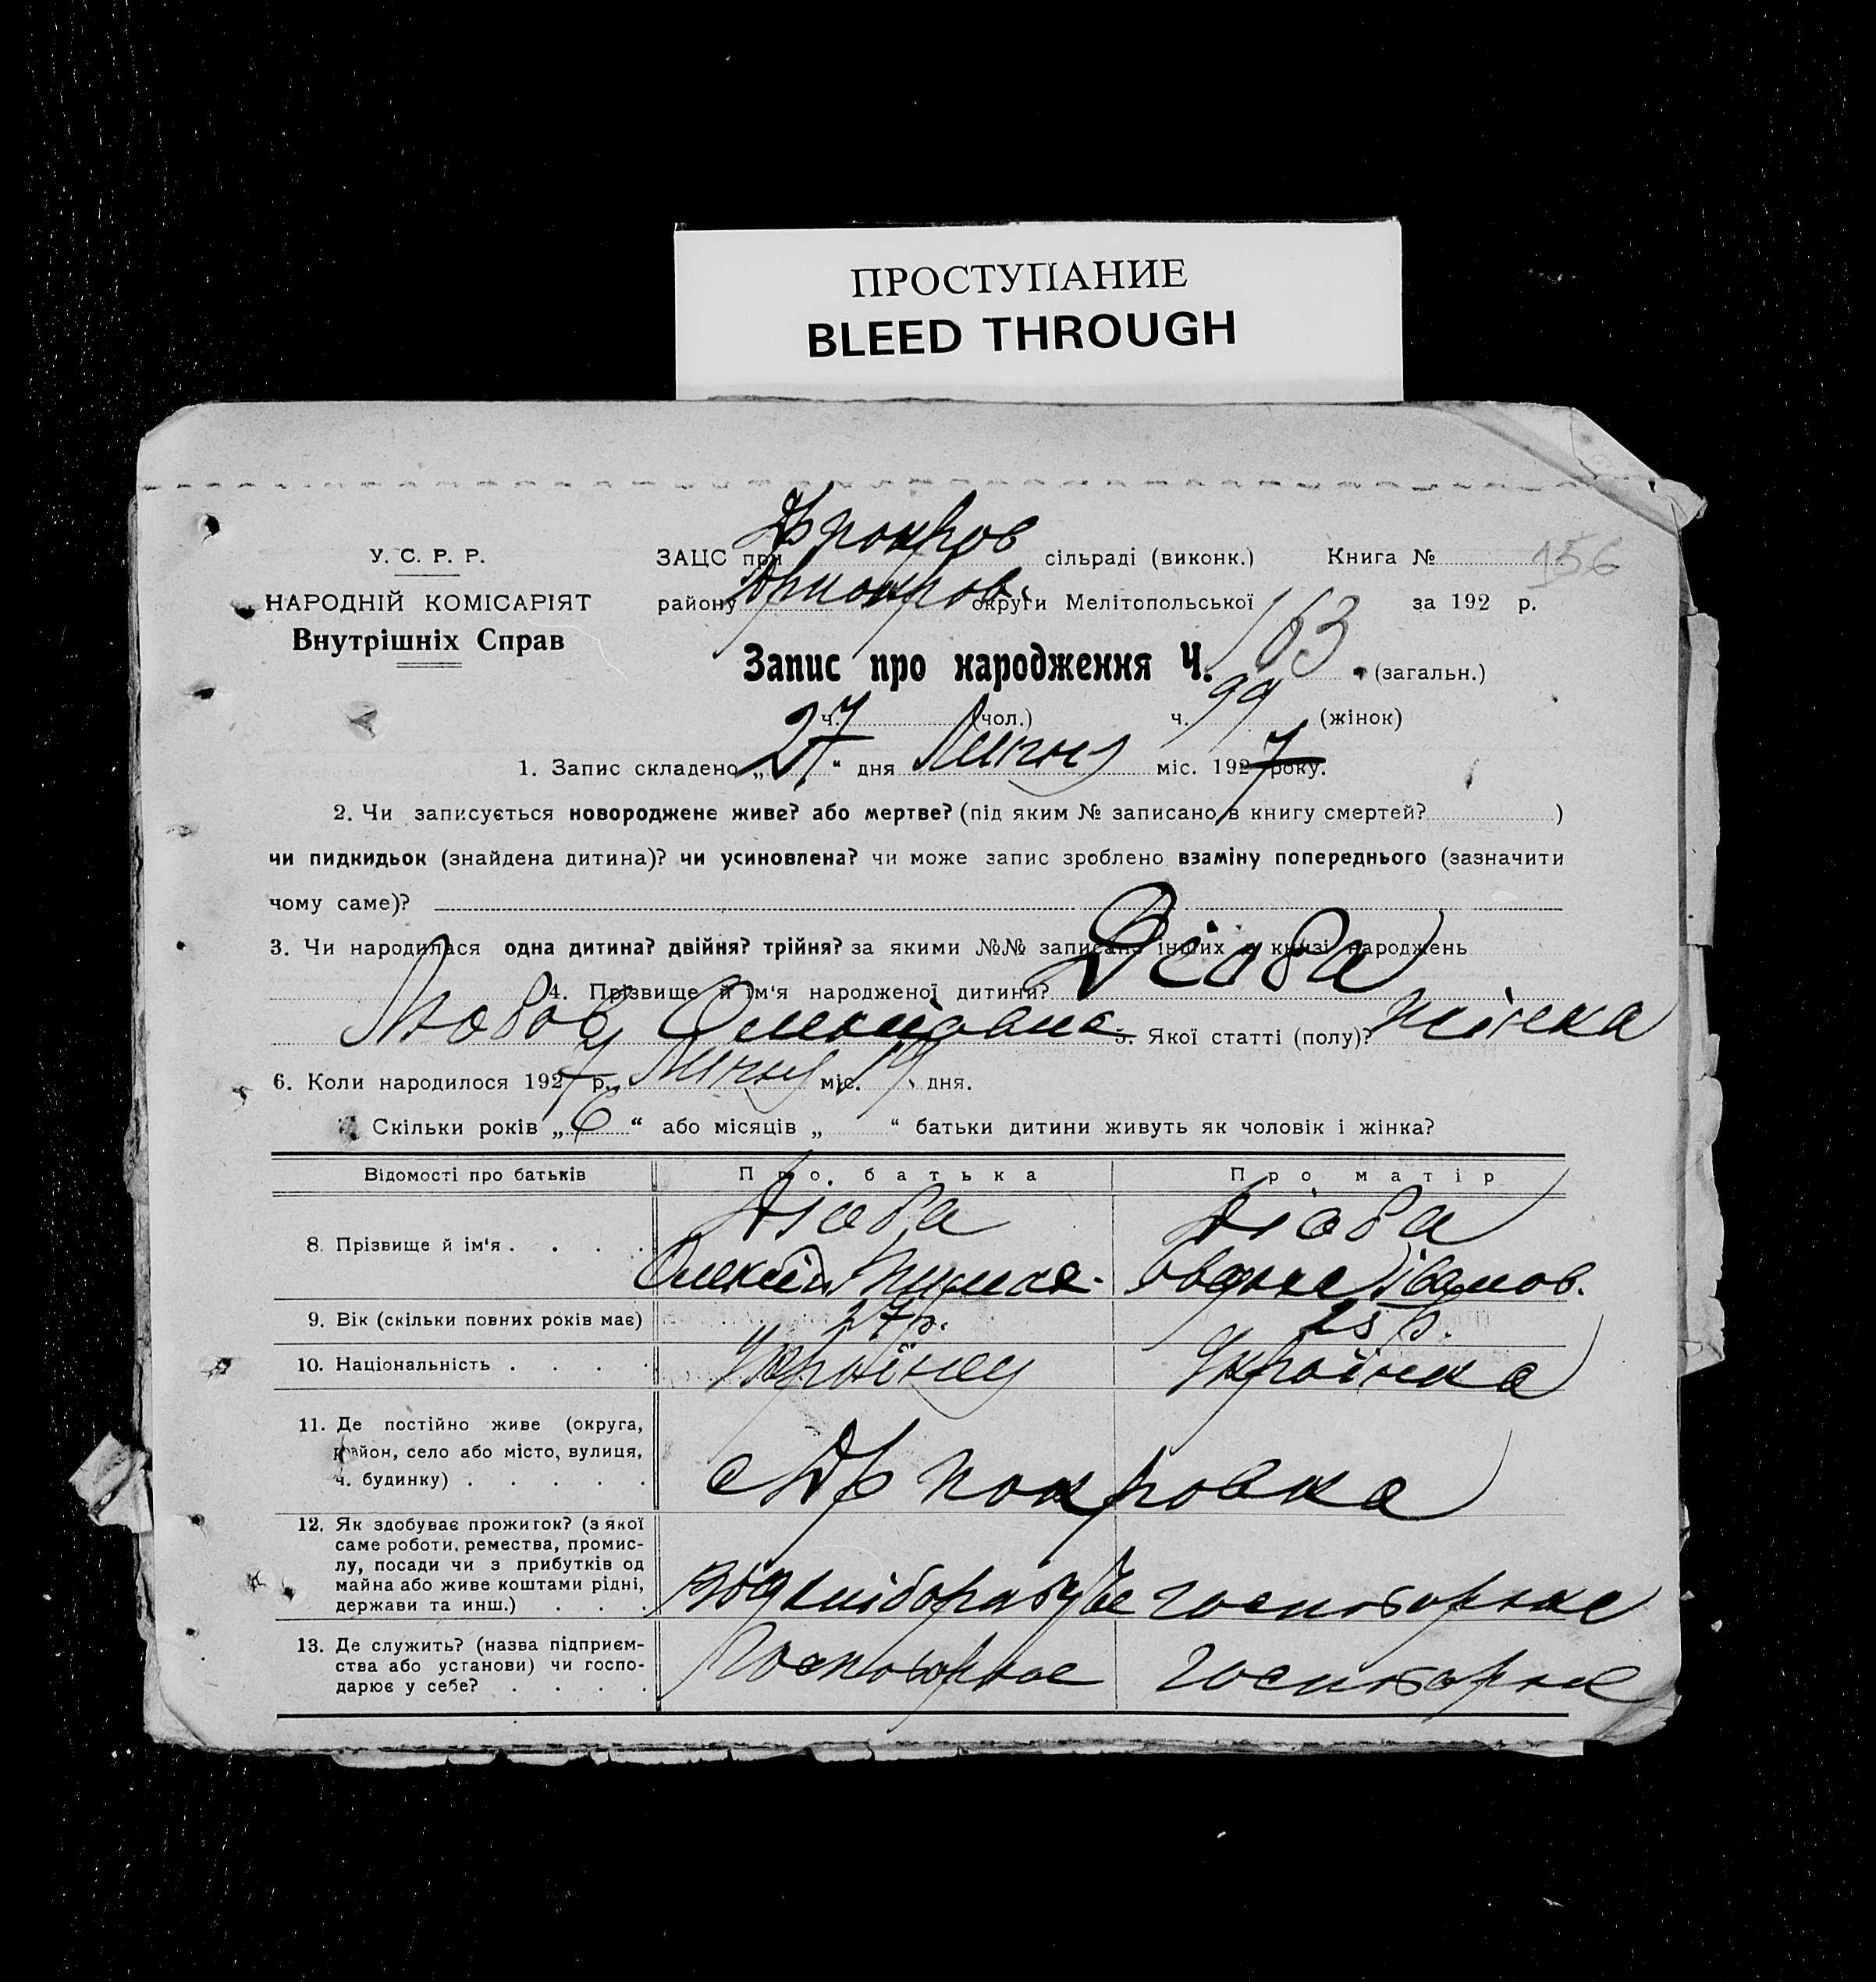 ПРОСТУПАНИЕ
BLEED THROUGH
У. С. Р. Р.
НАРОДНІЙ КОМІСАРІЯТ
Внутрішніх Справ
ЗАЦС при сільраді (виконк.) Книга № 156
району округи Мелітопольської за 192 р.
Запис про народження Ч. 163 (загальн.)
ч. (чол.) ч. 99 (жінок)
1. Запис складено „27“ дня Липня міс. 1927 року.
2. Чи записується новороджене живе? або мертве? (під яким № записано в книгу смертей? )
чи пидкидьок (знайдена дитина)? чи усиновлена? чи може запис зроблено взаміну попереднього (зазначити
чому саме)?
3. Чи народилася одна дитина? двійня? трійня? за якими №№ записано інших в книзі народжень
4. Прізвище й ім‘я народженої дитини? Дзюба
Любов Олексіівна 5. Якої статті (полу)? жінка
6. Коли народилося 1927 р. Липня міс. 19 дня.
Скільки років „6“ або місяців „ “ батьки дитини живуть як чоловік і жінка?
Відомості про батьків Про батька Про матір
8. Прізвище й ім‘я . . . . Дзюба Дзюба
Олексій Іванов.
9. Вік (скільки повних років має) 27 р. 25 р.
10. Національність . . . . Українец Українка
11. Де постійно живе (округа,
район, село або місто, вулиця,
ч. будинку) . . . . . с Др покровка
12. Як здобуває прожиток? (з якої
саме роботи, ремества, промис-
лу, посади чи з прибутків од
майна або живе коштами рідні,
держави та инш.) . . .
13. Де служить? (назва підприєм-
ства або установи) чи госпо-
дарює у себе? . . . .